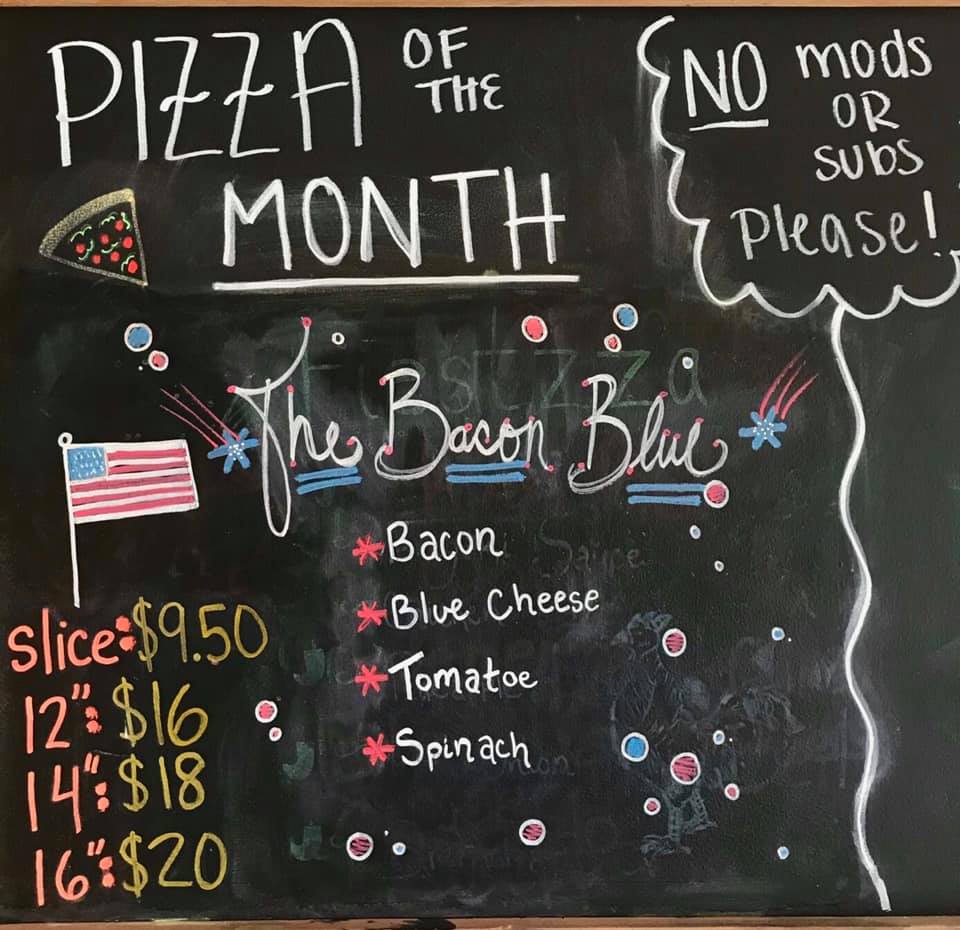 PIZZA OF THE
MONTH
NO mods
OR
subs
Please!
The Bacon Blue
* Bacon
* Blue Cheese
* Tomatoe
* Spinach
slice: $9.50
12": $16
14": $18
16": $20